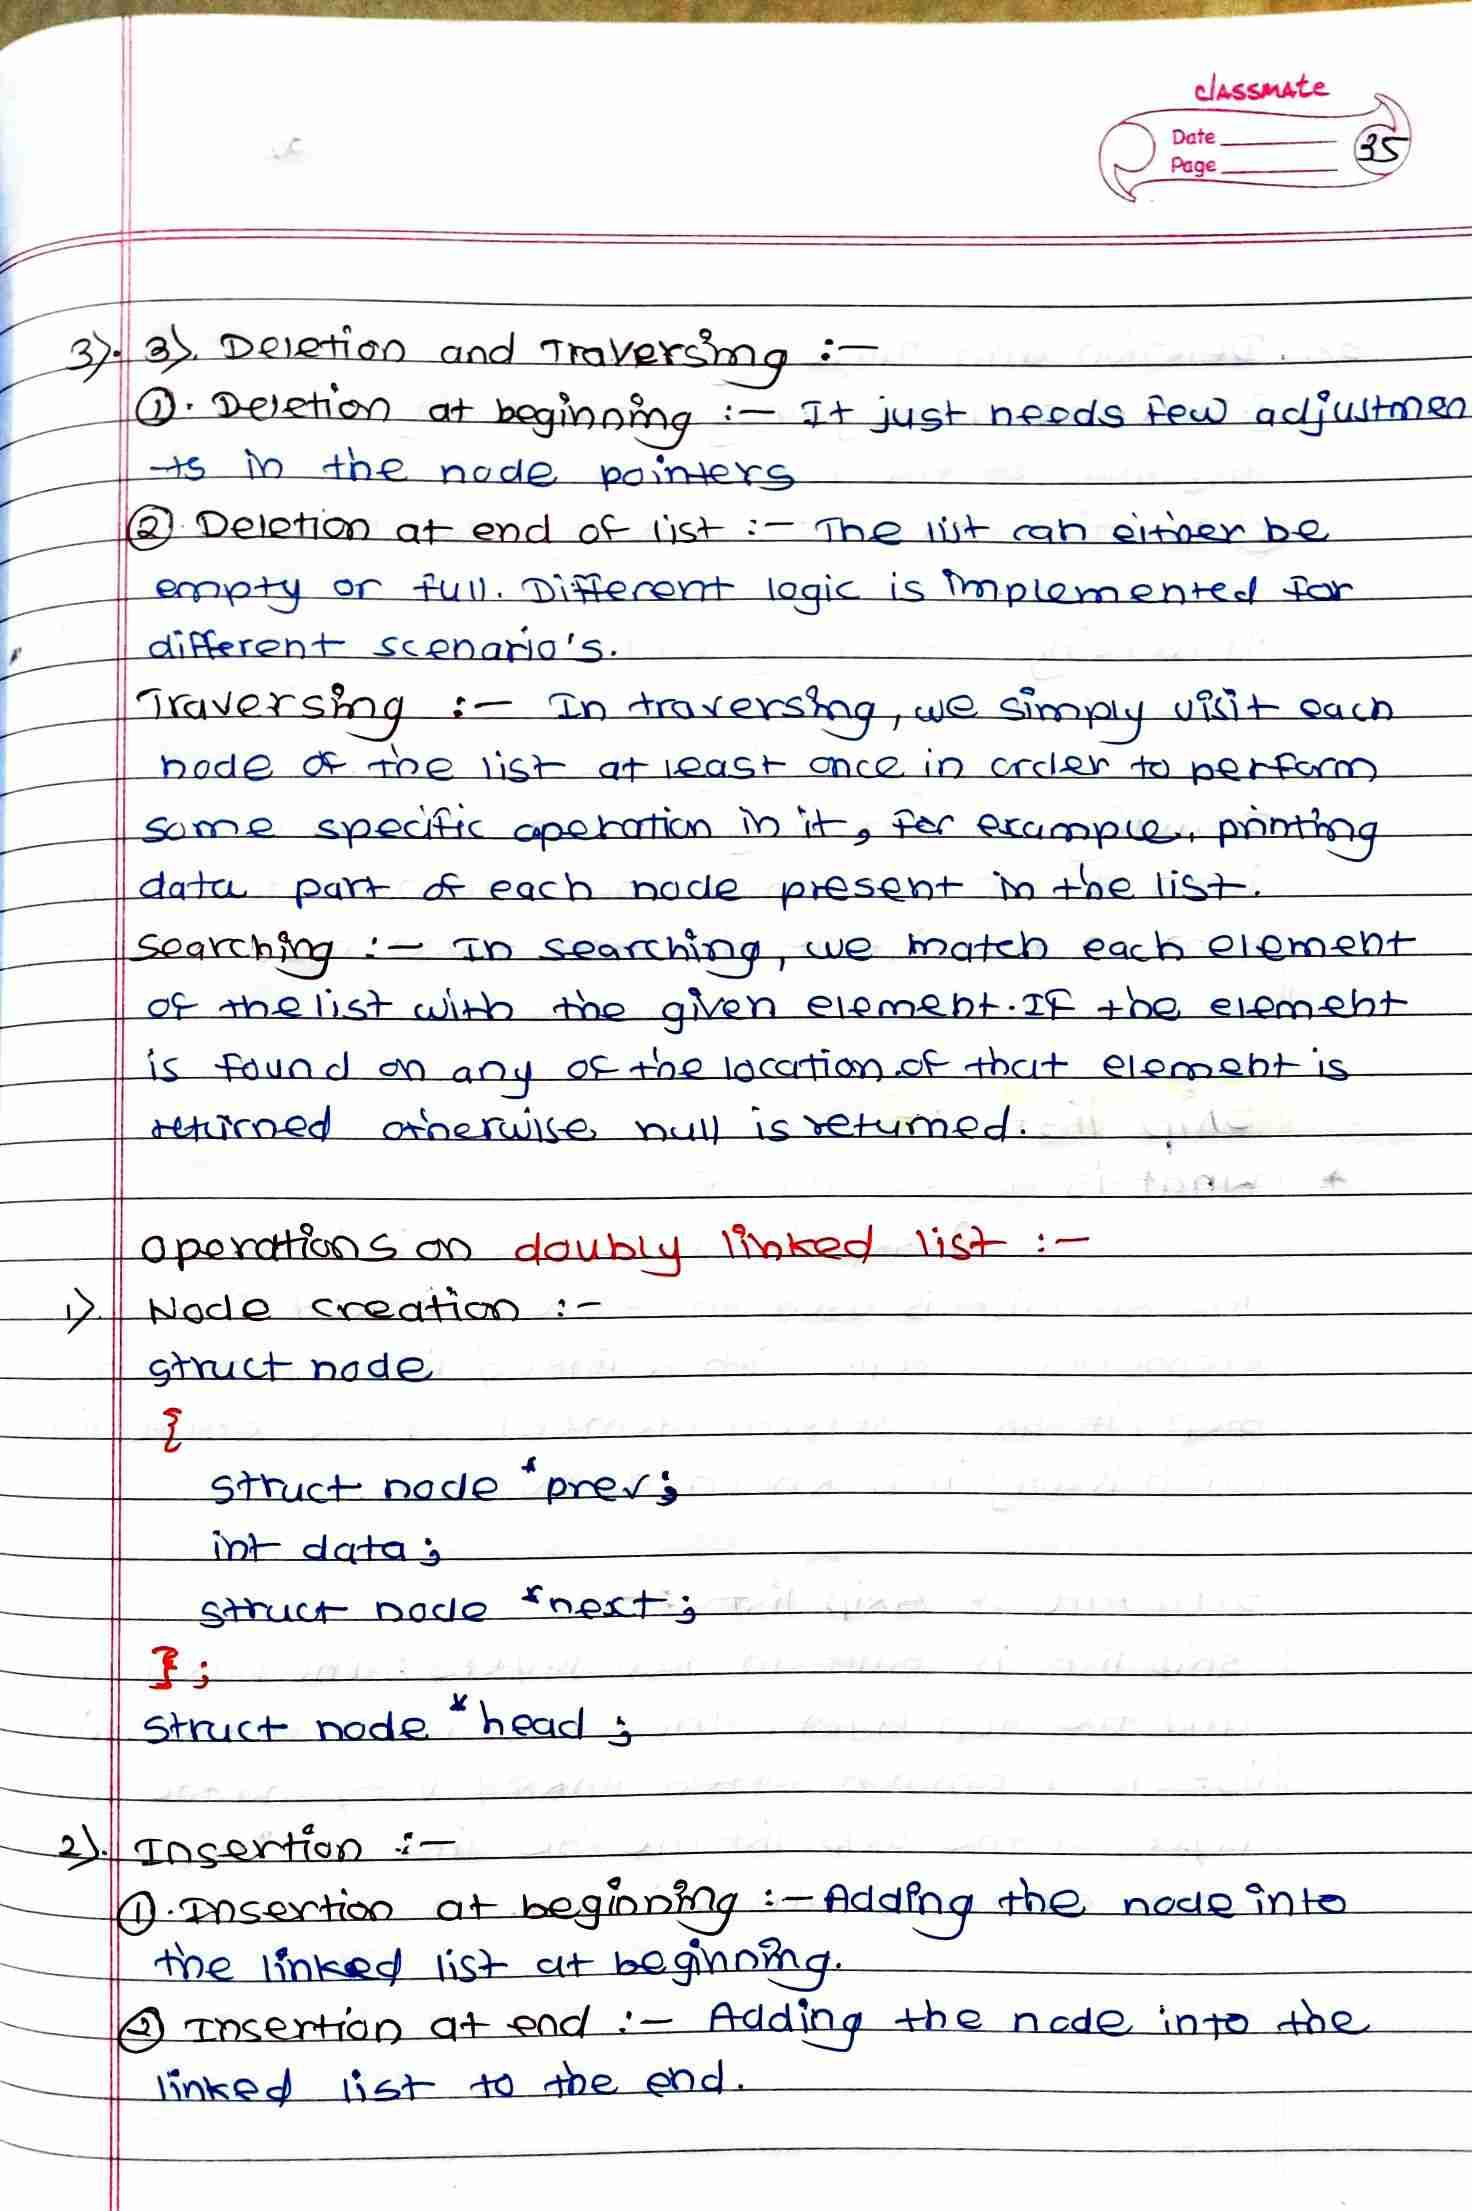 classmate
Date
Page
35
3). 3). Deletion and Traversing :-
①. Deletion at beginning :- It just needs few adjustmen
-ts in the node pointers
②. Deletion at end of list :- The list can either be
empty or full. Different logic is implemented for
different scenario's.
Traversing :- In traversing, we simply visit each
node of the list at least once in order to perform
some specific operation in it, for example, printing
data part of each node present in the list.
Searching :- In searching, we match each element
of the list with the given element. If the element
is found on any of the location of that element is
returned otherwise null is returned.
Operations on doubly linked list :-
1). Node creation :-
struct node
{
struct node *prev;
int data;
struct node *next;
};
struct node *head;
2). Insertion :-
①. Insertion at beginning :- Adding the node into
the linked list at beginning.
② Insertion at end :- Adding the node into the
linked list to the end.